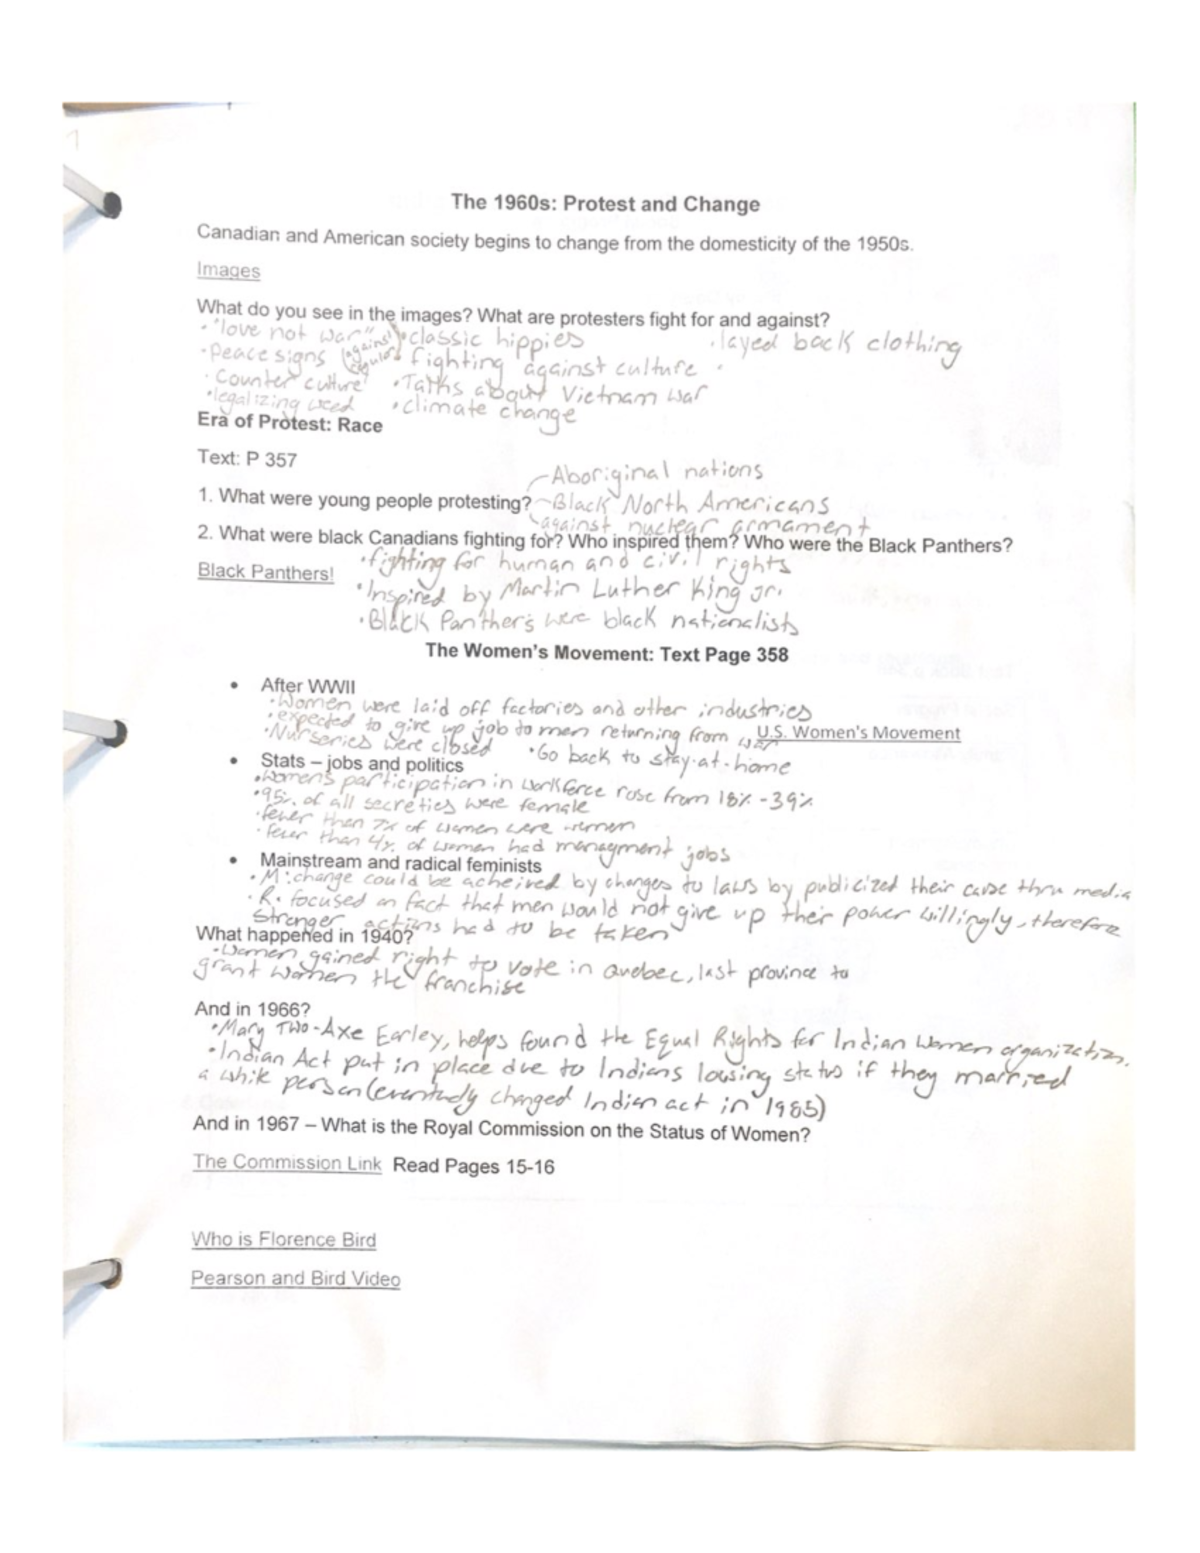 The 1960s: Protest and Change
Canadian and American society begins to change from the domesticity of the 1950s.
Images
What do you see in the images? What are protesters fight for and against?
• "love not war" • classic hippies • layed back clothing
• Peace signs (against fighting against culture
• Counter culture • Talks about Vietnam war
• legalizing weed • climate change
Era of Protest: Race
Text: P 357
- Aboriginal nations
1. What were young people protesting? - Black North Americans
- against nuclear armament
2. What were black Canadians fighting for? Who inspired them? Who were the Black Panthers?
• fighting for human and civil rights
Black Panthers!
• Inspired by Martin Luther King Jr.
• Black Panthers were black nationalists
The Women's Movement: Text Page 358
• After WWII
• Women were laid off factories and other industries
• expected to give up job to men returning from war
U.S. Women's Movement
• Nurseries were closed • Go back to stay-at-home
• Stats – jobs and politics
• Women's participation in workforce rose from 18% - 39%
• 95% of all secreties were female
• fewer than 7% of women were women
• fewer than 4% of women had managment jobs
• Mainstream and radical feminists
• M: change could be acheired by changes to laws by publicized their cause thru media
• R. focused on fact that men would not give up their power willingly, therefore
stronger actions had to be taken
What happened in 1940?
• Women gained right to vote in Quebec, last province to
grant women the franchise
And in 1966?
• Mary Two-Axe Earley, helps found the Equal Rights for Indian Women organization.
• Indian Act put in place due to Indians lousing status if they married
a white person (eventually changed Indian act in 1985)
And in 1967 – What is the Royal Commission on the Status of Women?
The Commission Link Read Pages 15-16
Who is Florence Bird
Pearson and Bird Video